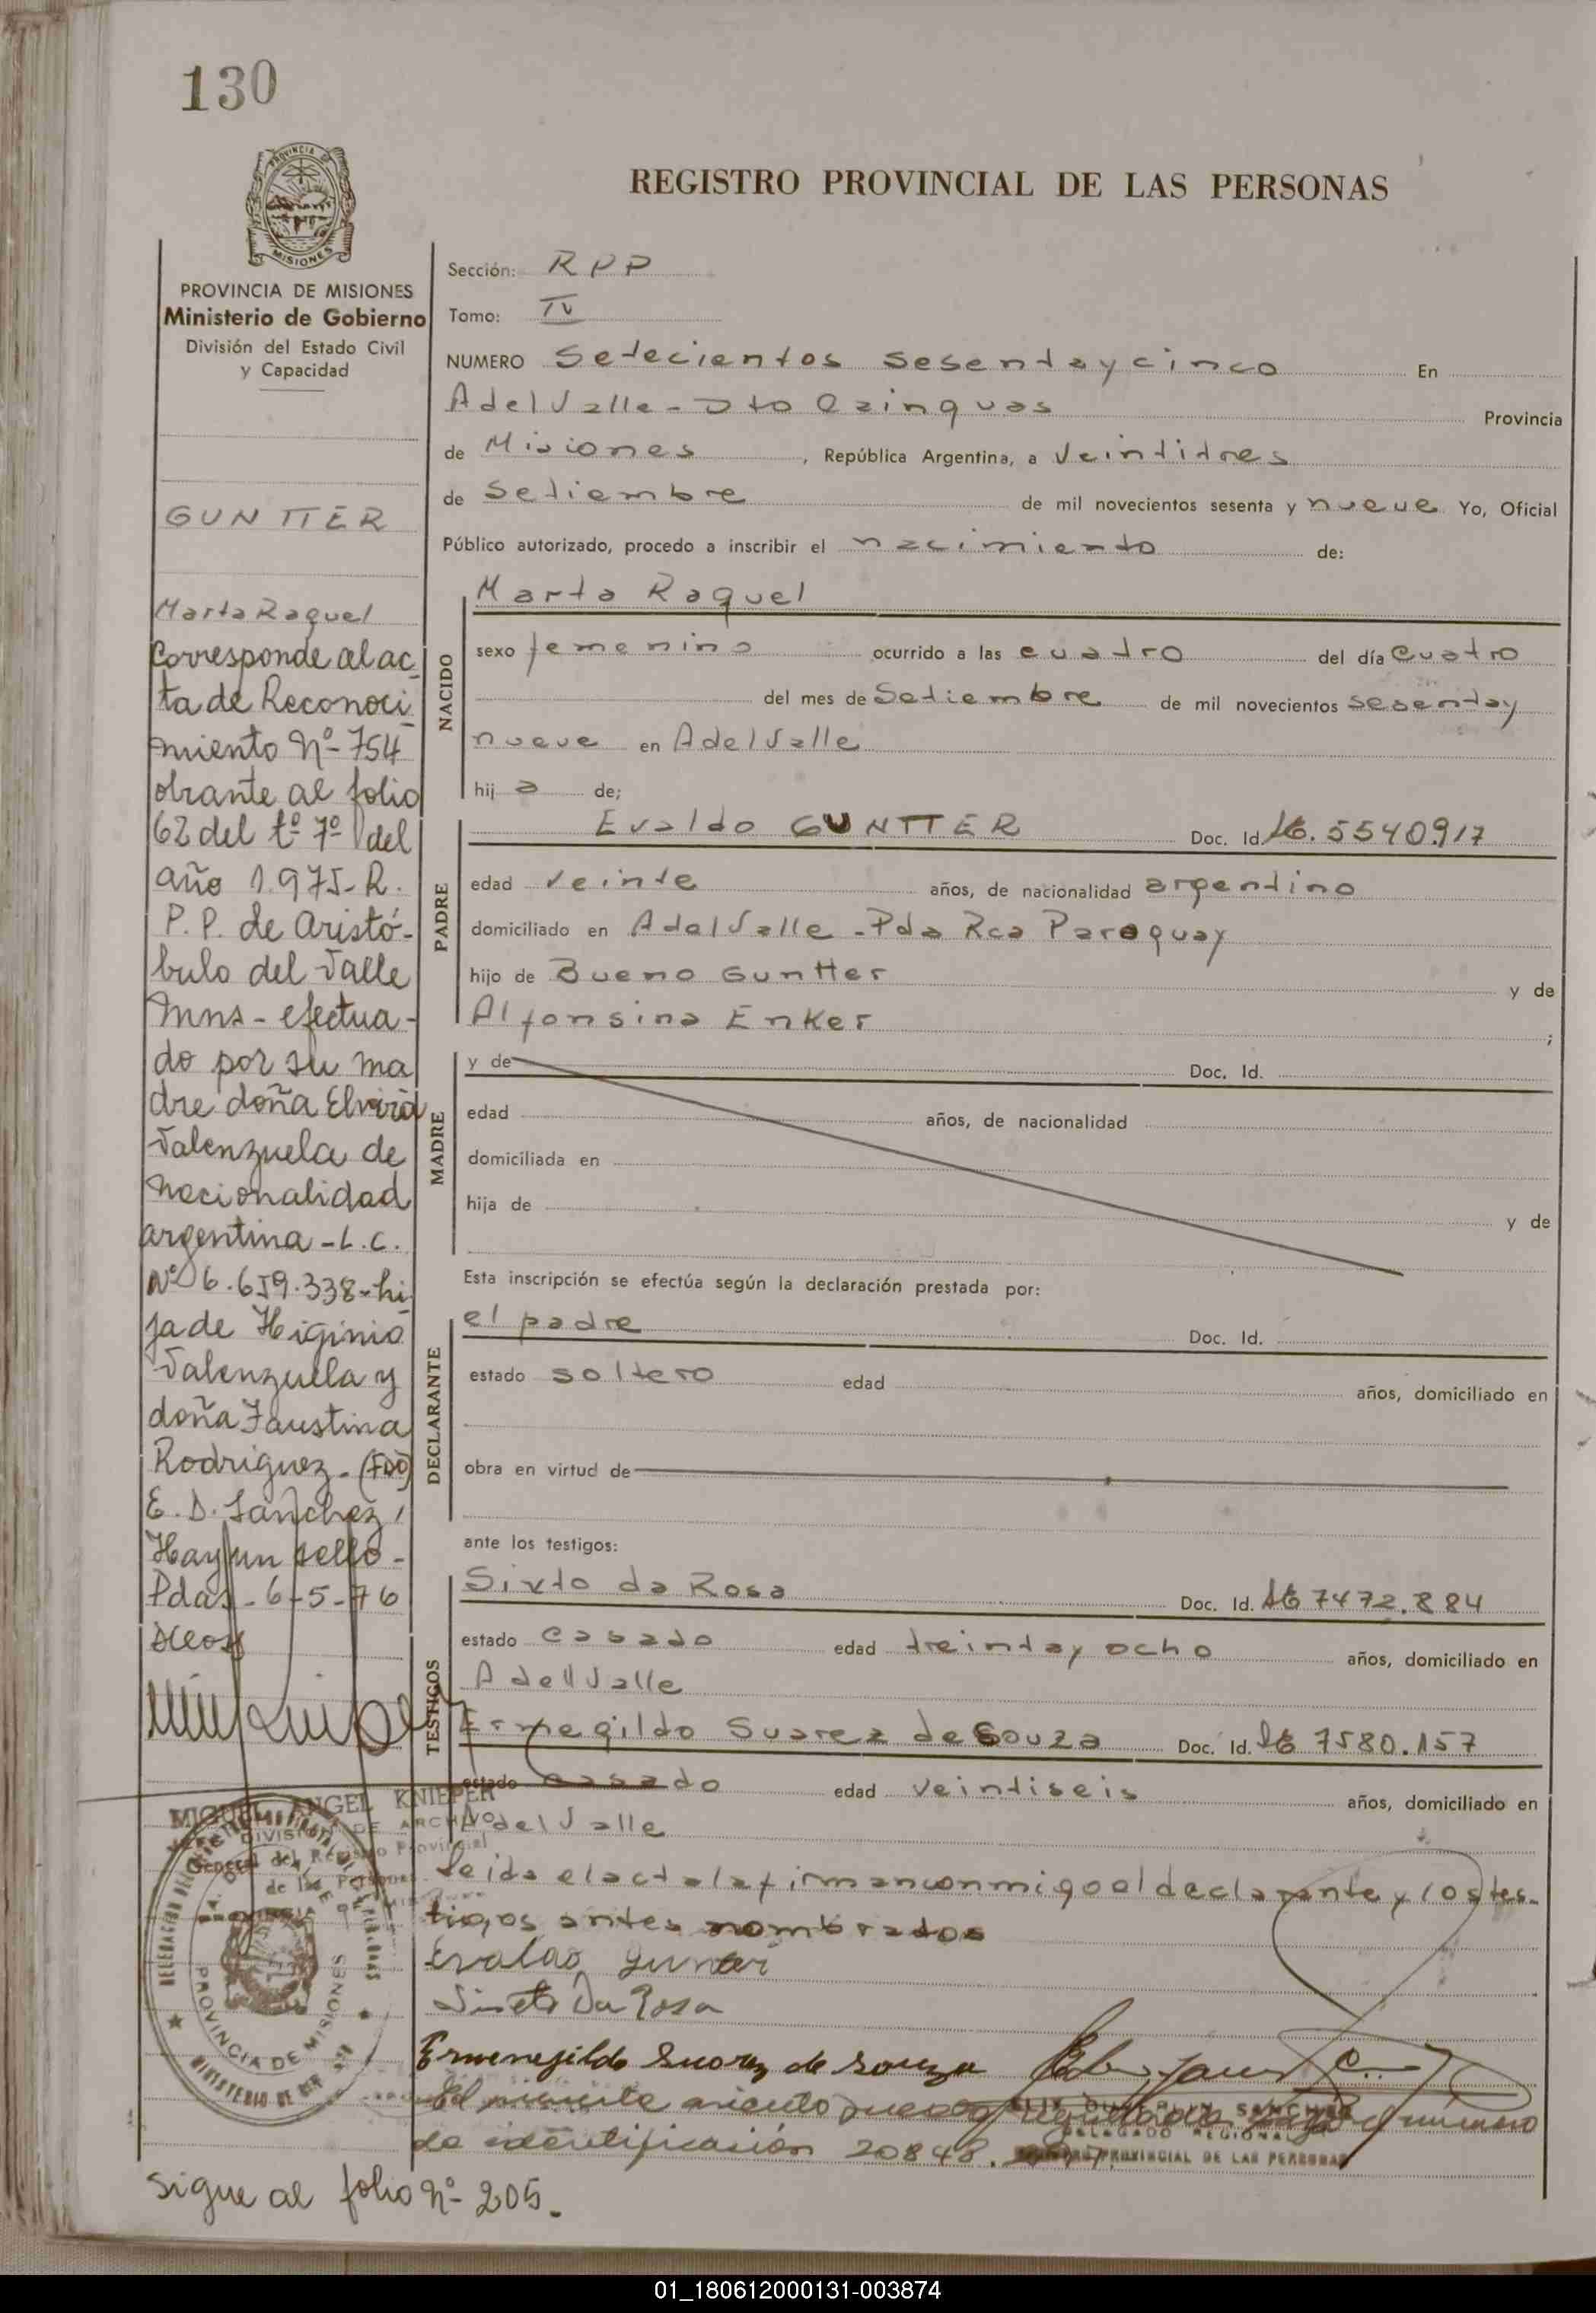 130
PROVINCIA DE
MISIONES
REGISTRO PROVINCIAL DE LAS PERSONAS
PROVINCIA DE MISIONES
Ministerio de Gobierno
División del Estado Civil
y Capacidad
GUNTTER
Marta Raquel
Corresponde al ac-
ta de Reconoci-
miento Nº 754
obrante al folio
62 del tº 7º del
año 1.975- R.
P. P. de Aristó-
bulo del Valle
Mns - efectua-
do por su ma
dre doña Elvira
Valenzuela de
nacionalidad
argentina - L.C.
Nº 6.659.338 - hi-
ja de Higinio
Valenzuela y
doña Faustina
Rodriguez. (FDO)
E. D. Sanchez,
Hay un sello -
Pdas - 6-5-76
Sección: RPP
Tomo: IV
NUMERO Setecientos sesenta y cinco En
A del Valle - Dto Cainguas Provincia
de Misiones, República Argentina, a Veintitres
de Setiembre de mil novecientos sesenta y nueve Yo, Oficial
Público autorizado, procedo a inscribir el nacimiento de:
NACIDO
Marta Raquel
sexo femenino ocurrido a las cuatro del día cuatro
del mes de Setiembre de mil novecientos sesenta y
nueve en A del Valle
hij a de;
PADRE
Evaldo GUNTTER Doc. Id. 5540917
edad veinte años, de nacionalidad argentino
domiciliado en A del Valle - Pda Rca Paraguay
hijo de Bueno Guntter y de
Alfonsina Enker ;
MADRE
y de Doc. Id.
edad años, de nacionalidad
domiciliada en
hija de y de
Esta inscripción se efectúa según la declaración prestada por:
DECLARANTE
el padre Doc. Id.
estado soltero edad años, domiciliado en
obra en virtud de
ante los testigos:
TESTIGOS
Sixto da Rosa Doc. Id. 7472.884
estado casado edad treinta y ocho años, domiciliado en
A del Valle
Ermegildo Suarez de Souza Doc. Id. 7580.157
estado casado edad veintiseis años, domiciliado en
A del Valle
Leida el acta la firman conmigo el declarante y los tes-
tigos antes nombrados
Evaldo Gunter
Sixto Da Rosa
Ermenegildo Suarez de Souza
El presente asiento número
de identificación 20848.
MIGUEL ANGEL KNIEPER
DIVISION DE ARCHIVO
General del Registro Provincial
de las Personas
PROVINCIA DE MISIONES
SANCHEZ
DELEGADO REGIONAL
PROVINCIAL DE LAS PERSONAS
Sigue al folio Nº 205.
01_180612000131-003874